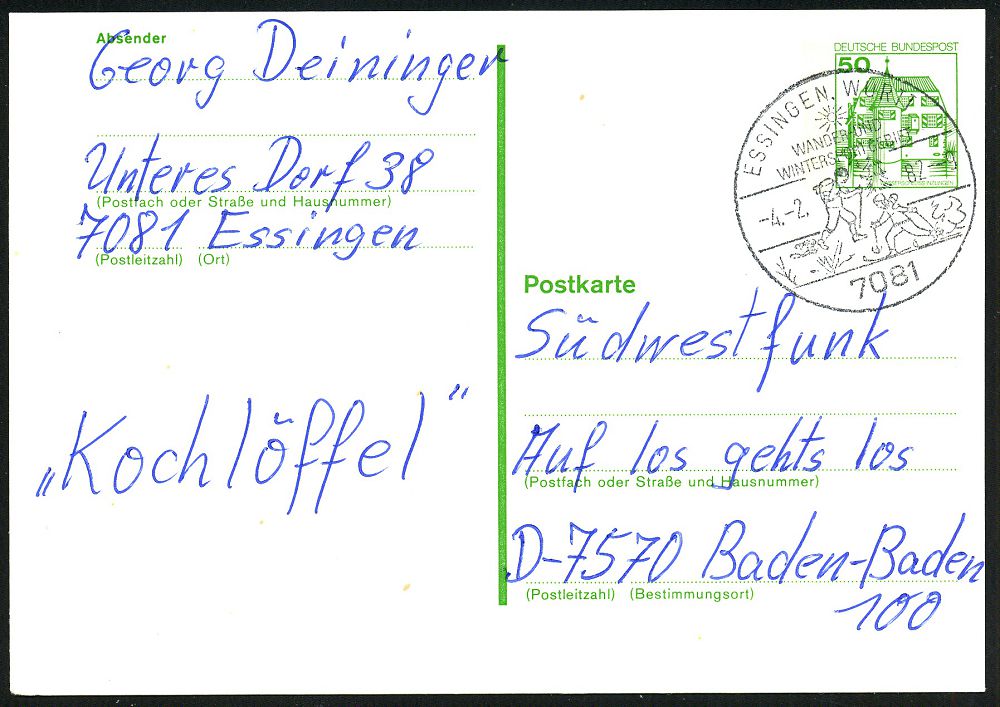 Absender
Georg Deininger
Unteres Dorf 38
(Postfach oder Straße und Hausnummer)
7081 Essingen
(Postleitzahl) (Ort)
„Kochlöffel“
DEUTSCHE BUNDESPOST
50
ESSINGEN, WÜRTT
WANDER-UND
WINTERSPORTGEBIET
-4.-2. 82-
7081
Postkarte
Südwestfunk
Auf los gehts los
(Postfach oder Straße und Hausnummer)
D-7570 Baden-Baden
(Postleitzahl) (Bestimmungsort)
100